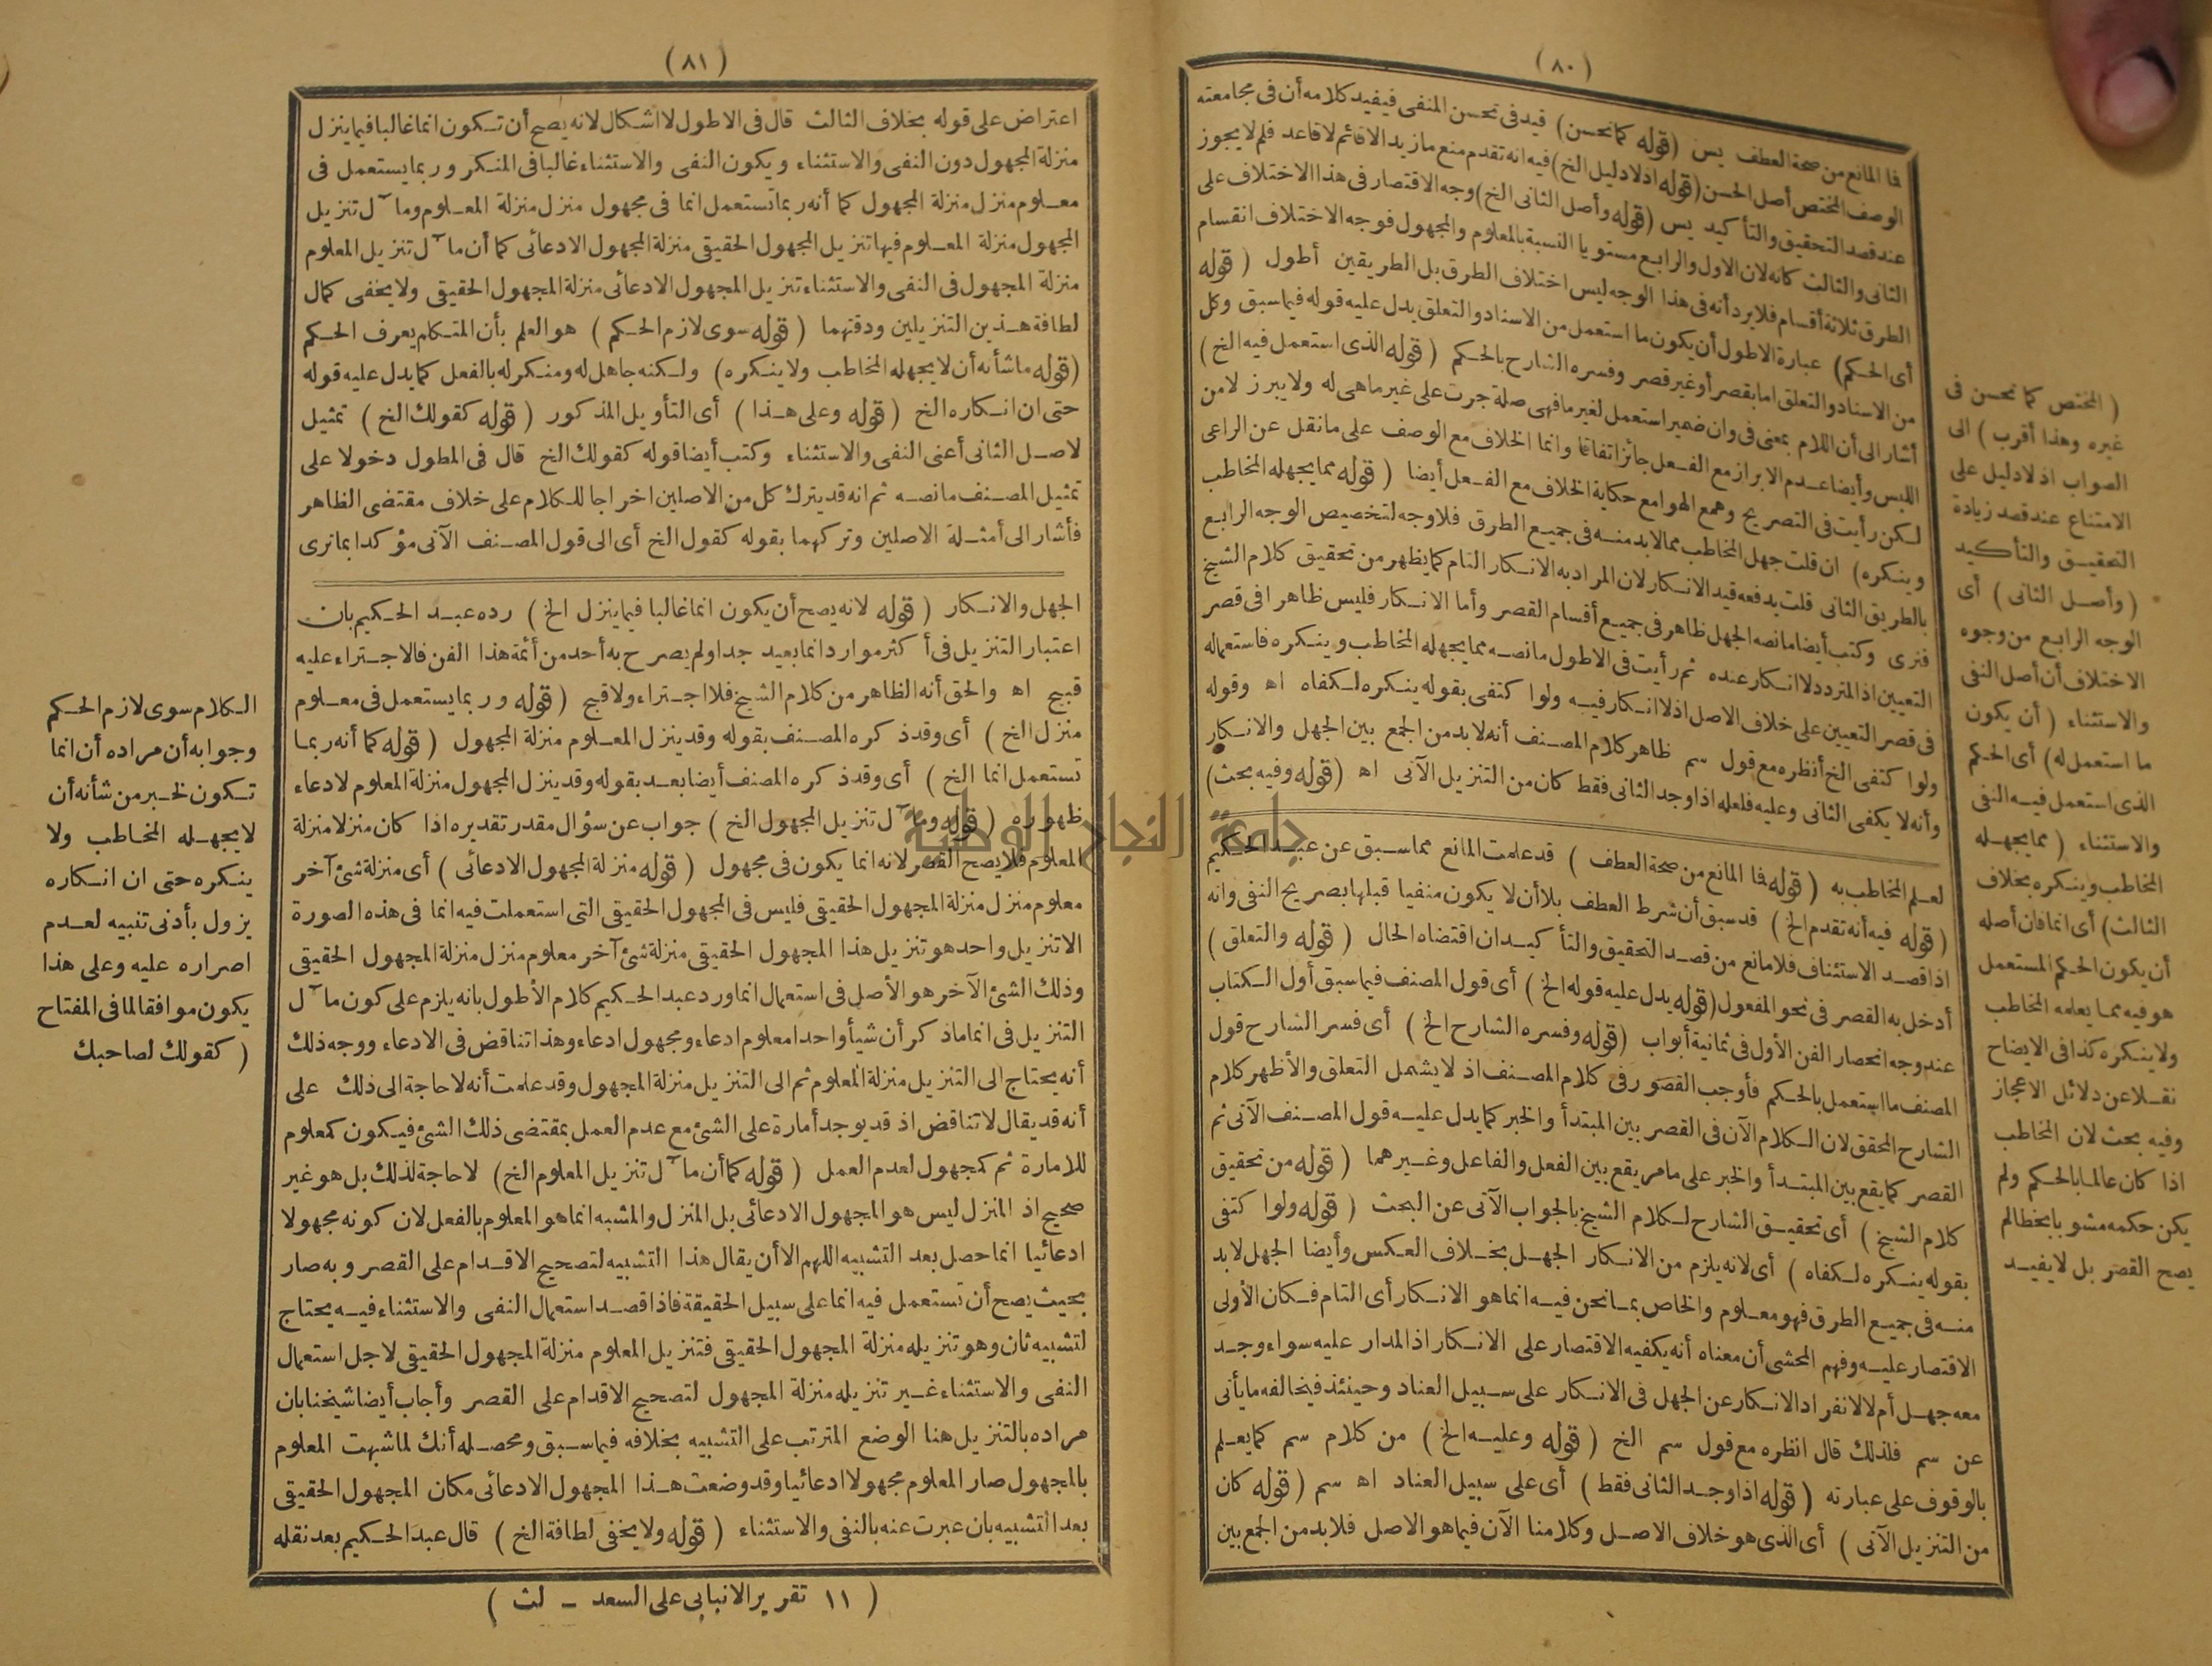 ( ٨٠ )
فا المانع من صحة العطف يس ( قوله كما تحسن ) قيد فى تحسن المنفى فيفيد كلامه أن فى مجامعته
الوصف المختص أصل الحسن ( قوله اذ لا دليل الخ ) فيه انه تقدم منع ما زيد الا قائم لا قاعد فلم لا يجوز
عند قصد التحقيق والتأكيد يس ( قوله وأصل الثانى الخ ) وجه الاقتصار فى هذا الاختلاف على
الثانى والثالث كانه لان الاول والرابع مستويا النسبة بالمعلوم والمجهول فوجه الاختلاف انقسام
الطرق ثلاثة أقسام فلا يرد أنه فى هذا الوجه ليس اختلاف الطرق بل الطريقين أطول ( قوله
أى الحكم ) عبارة الاطول أن يكون ما استعمل من الاسناد والتعلق يدل عليه قوله فيما سبق وكل
من الاسناد والتعلق اما بقصر أو غير قصر وفسره الشارح بالحكم ( قوله الذى استعمل فيه الخ )
أشار الى أن اللام بمعنى فى وان ضمير استعمل لغير ما فهى صلة جرت على غير ما هى له ولا يبرز لا من
اللبس وأيضا عدم الابراز مع الفعل جائز اتفاقا وانما الخلاف مع الوصف على ما نقل عن الراعى
لكن رأيت فى التصريح وهمع الهوامع حكاية الخلاف مع الفعل أيضا ( قوله مما يجهله المخاطب
وينكره ) ان قلت جهل المخاطب مما لا بد منه فى جميع الطرق فلا وجه لتخصيص الوجه الرابع
بالطريق الثانى قلت يدفعه قيد الانكار لان المراد به الانكار التام كما يظهر من تحقيق كلام الشيخ
فنرى وكتب أيضا ما نصه الجهل ظاهر فى جميع أقسام القصر وأما الانكار فليس ظاهرا فى قصر
التعيين اذ المتردد لا انكار عنده ثم رأيت فى الاطول ما نصه مما يجهله المخاطب وينكره فاستعماله
فى قصر التعيين على خلاف الاصل اذ لا انكار فيه ولو اكتفى بقوله ينكره لكفاه اه وقوله
ولو اكتفى الخ أنظره مع قول سم ظاهر كلام المصنف أنه لا بد من الجمع بين الجهل والانكار
وأنه لا يكفى الثانى وعليه فلعله اذا وجد الثانى فقط كان من التنزيل الآتى اه ( قوله وفيه بحث )
لعلم المخاطب به ( قوله فا المانع من صحة العطف ) قد علمت المانع مما سبق عن عبد الحكيم
( قوله فيه أنه تقدم الخ ) قد سبق أن شرط العطف بلا أن لا يكون منفيا قبلها بصريح النفى وانه
اذا قصد الاستئناف فلا مانع من قصد التحقيق والتأكيد ان اقتضاه الحال ( قوله والتعلق )
أدخل به القصر فى نحو المفعول ( قوله يدل عليه قوله الخ ) أى قول المصنف فيما سبق أول الكتاب
عند وجه انحصار الفن الأول فى ثمانية أبواب ( قوله وفسره الشارح الخ ) أى فسر الشارح قول
المصنف ما استعمل بالحكم فأوجب القصور فى كلام المصنف اذ لا يشمل التعلق والأظهر كلام
الشارح المحقق لان الكلام الآن فى القصر بين المبتدأ والخبر كما يدل عليه قول المصنف الآتى ثم
القصر كما يقع بين المبتدأ والخبر على ما مر يقع بين الفعل والفاعل وغيرهما ( قوله من تحقيق
كلام الشيخ ) أى تحقيق الشارح لكلام الشيخ بالجواب الآتى عن البحث ( قوله ولو اكتفى
بقوله ينكره لكفاه ) أى لانه يلزم من الانكار الجهل بخلاف العكس وأيضا الجهل لا بد
منه فى جميع الطرق فهو معلوم والخاص بما نحن فيه انما هو الانكار أى التام فكان الأولى
الاقتصار عليه وفهم المحشى أن معناه أنه يكفيه الاقتصار على الانكار اذ المدار عليه سواء وجد
معه جهل أم لا لانفراد الانكار عن الجهل فى الانكار على سبيل العناد وحينئذ فيخالفه ما يأتى
عن سم فلذلك قال انظره مع قول سم الخ ( قوله وعليه الخ ) من كلام سم كما يعلم
بالوقوف على عبارته ( قوله اذا وجد الثانى فقط ) أى على سبيل العناد اه سم ( قوله كان
من التنزيل الآتى ) أى الذى هو خلاف الاصل وكلامنا الآن فيما هو الاصل فلا بد من الجمع بين
( المختص كما تحسن فى
غيره وهذا أقرب ) الى
الصواب اذ لا دليل على
الامتناع عند قصد زيادة
التحقيق والتأكيد
( وأصل الثانى ) أى
الوجه الرابع من وجوه
الاختلاف أن أصل النفى
والاستثناء ( أن يكون
ما استعمل له ) أى الحكم
الذى استعمل فيه النفى
والاستثناء ( مما يجهله
المخاطب وينكره بخلاف
الثالث ) أى انما فان أصله
أن يكون الحكم المستعمل
هو فيه مما يعلمه المخاطب
ولا ينكره كذا فى الايضاح
نقلا عن دلائل الاعجاز
وفيه بحث لان المخاطب
اذا كان عالما بالحكم ولم
يكن حكمه مشوبا بخطا لم
يصح القصر بل لا يفيد
( ٨١ )
اعتراض على قوله بخلاف الثالث قال فى الاطول لا اشكال لانه يصح أن تكون انما غالبا فيما ينزل
منزلة المجهول دون النفى والاستثناء ويكون النفى والاستثناء غالبا فى المنكر وربما يستعمل فى
معلوم منزل منزلة المجهول كما أنه ربما تستعمل انما فى مجهول منزل منزلة المعلوم ومآل تنزيل
المجهول منزلة المعلوم فيها تنزيل المجهول الحقيقى منزلة المجهول الادعائى كما أن مآل تنزيل المعلوم
منزلة المجهول فى النفى والاستثناء تنزيل المجهول الادعائى منزلة المجهول الحقيقى ولا يخفى كمال
لطافة هذين التنزيلين ودقتهما ( قوله سوى لازم الحكم ) هو العلم بأن المتكلم يعرف الحكم
( قوله ما شأنه أن لا يجهله المخاطب ولا ينكره ) ولكنه جاهل له ومنكر له بالفعل كما يدل عليه قوله
حتى ان انكاره الخ ( قوله وعلى هذا ) أى التأويل المذكور ( قوله كقولك الخ ) تمثيل
لاصل الثانى أعنى النفى والاستثناء وكتب أيضا قوله كقولك الخ قال فى المطول دخولا على
تمثيل المصنف ما نصه ثم انه قد يترك كل من الاصلين اخراجا للكلام على خلاف مقتضى الظاهر
فأشار الى أمثلة الاصلين وتركهما بقوله كقول الخ أى الى قول المصنف الآتى مؤكدا بما ترى
الجهل والانكار ( قوله لانه يصح أن يكون انما غالبا فيما ينزل الخ ) رده عبد الحكيم بان
اعتبار التنزيل فى أكثر موارد انما بعيد جدا ولم يصرح به أحد من أئمة هذا الفن فالاجتراء عليه
قبيح اه والحق أنه الظاهر من كلام الشيخ فلا اجتراء ولا قبح ( قوله وربما يستعمل فى معلوم
منزل الخ ) أى وقد ذكره المصنف بقوله وقد ينزل المعلوم منزلة المجهول ( قوله كما أنه ربما
تستعمل انما الخ ) أى وقد ذكره المصنف أيضا بعد بقوله وقد ينزل المجهول منزلة المعلوم لادعاء
ظهوره ( قوله ومآل تنزيل المجهول الخ ) جواب عن سؤال مقدر تقديره اذا كان منزلا منزلة
المعلوم فلا يصح القصر لانه انما يكون فى مجهول ( قوله منزلة المجهول الادعائى ) أى منزلة شئ آخر
معلوم منزل منزلة المجهول الحقيقى فليس فى المجهول الحقيقى التى استعملت فيه انما فى هذه الصورة
الا تنزيل واحد هو تنزيل هذا المجهول الحقيقى منزلة شئ آخر معلوم منزل منزلة المجهول الحقيقى
وذلك الشئ الآخر هو الأصل فى استعمال انما ورد عبد الحكيم كلام الأطول بانه يلزم على كون مآل
التنزيل فى انما ما ذكر أن شيأ واحدا معلوم ادعاء ومجهول ادعاء وهذا تناقض فى الادعاء ووجه ذلك
أنه يحتاج الى التنزيل منزلة المعلوم ثم الى التنزيل منزلة المجهول وقد علمت أنه لا حاجة الى ذلك على
أنه قد يقال لا تناقض اذ قد يوجد أمارة على الشئ مع عدم العمل بمقتضى ذلك الشئ فيكون كمعلوم
للامارة ثم كمجهول لعدم العمل ( قوله كما أن مآل تنزيل المعلوم الخ ) لا حاجة لذلك بل هو غير
صحيح اذ المنزل ليس هو المجهول الادعائى بل المنزل والمشبه انما هو المعلوم بالفعل لان كونه مجهولا
ادعائيا انما حصل بعد التشبيه اللهم الا أن يقال هذا التشبيه لتصحيح الاقدام على القصر وبه صار
بحيث يصح أن تستعمل فيه انما على سبيل الحقيقة فاذا قصد استعمال النفى والاستثناء فيه يحتاج
لتشبيه ثان وهو تنزيله منزلة المجهول الحقيقى فتنزيل المعلوم منزلة المجهول الحقيقى لاجل استعمال
النفى والاستثناء غير تنزيله منزلة المجهول لتصحيح الاقدام على القصر وأجاب أيضا شيخنا بان
مراده بالتنزيل هنا الوضع المترتب على التشبيه بخلافه فيما سبق ومحصله أنك لما شبهت المعلوم
بالمجهول صار المعلوم مجهولا ادعائيا وقد وضعت هذا المجهول الادعائى مكان المجهول الحقيقى
بعد التشبيه بان عبرت عنه بالنفى والاستثناء ( قوله ولا يخفى لطافة الخ ) قال عبد الحكيم بعد نقله
الكلام سوى لازم الحكم
وجوابه أن مراده أن انما
تكون لخبر من شأنه أن
لا يجهله المخاطب ولا
ينكره حتى ان انكاره
يزول بأدنى تنبيه لعدم
اصراره عليه وعلى هذا
يكون موافقا لما فى المفتاح
( كقولك لصاحبك
( ١١ تقرير الانبابى على السعد – لث )
جامعة النجاح الوطنية